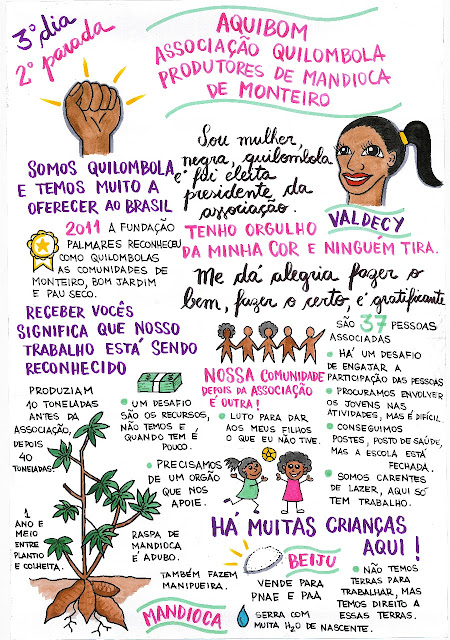 3º dia
2ª parada
AQUIBOM
ASSOCIAÇÃO QUILOMBOLA
PRODUTORES DE MANDIOCA
DE MONTEIRO
SOMOS QUILOMBOLA
E TEMOS MUITO A
OFERECER AO BRASIL
Sou mulher,
negra, quilombola
e fui eleita
presidente da
associação.
VALDECY
TENHO ORGULHO
DA MINHA COR E NINGUÉM TIRA.
2011 A FUNDAÇÃO
PALMARES RECONHECEU
COMO QUILOMBOLAS
AS COMUNIDADES DE
MONTEIRO, BOM JARDIM
E PAU SECO.
Me dá alegria fazer o
bem, fazer o certo, é gratificante
RECEBER VOCÊS
SIGNIFICA QUE NOSSO
TRABALHO ESTÁ SENDO
RECONHECIDO
SÃO 37 PESSOAS
ASSOCIADAS
• HÁ UM DESAFIO
DE ENGAJAR A
PARTICIPAÇÃO DAS PESSOAS
• PROCURAMOS ENVOLVER
OS JOVENS NAS
ATIVIDADES, MAS É DIFÍCIL.
• CONSEGUIMOS
POSTES, POSTO DE SAÚDE,
MAS A ESCOLA ESTÁ
FECHADA.
• SOMOS CARENTES
DE LAZER, AQUI SÓ
TEM TRABALHO.
NOSSA COMUNIDADE
DEPOIS DA ASSOCIAÇÃO
É OUTRA!
• LUTO PARA DAR
AOS MEUS FILHOS
O QUE EU NÃO TIVE.
PRODUZIAM
10 TONELADAS
ANTES DA
ASSOCIAÇÃO,
DEPOIS
40
TONELADAS.
• UM DESAFIO
SÃO OS RECURSOS,
NÃO TEMOS E
QUANDO TEM É
POUCO.
• PRECISAMOS
DE UM ORGÃO
QUE NOS
APOIE.
HÁ MUITAS CRIANÇAS
AQUI!
1
ANO E
MEIO
ENTRE
PLANTIO
E COLHEITA.
RASPA DE
MANDIOCA
É ADUBO.
TAMBÉM FAZEM
MANIPUEIRA.
MANDIOCA
BEIJU
VENDE PARA
PNAE E PAA
SERRA COM
MUITA H2O DE NASCENTE.
• NÃO TEMOS
TERRAS PARA
TRABALHAR, MAS
TEMOS DIREITO A
ESSAS TERRAS.